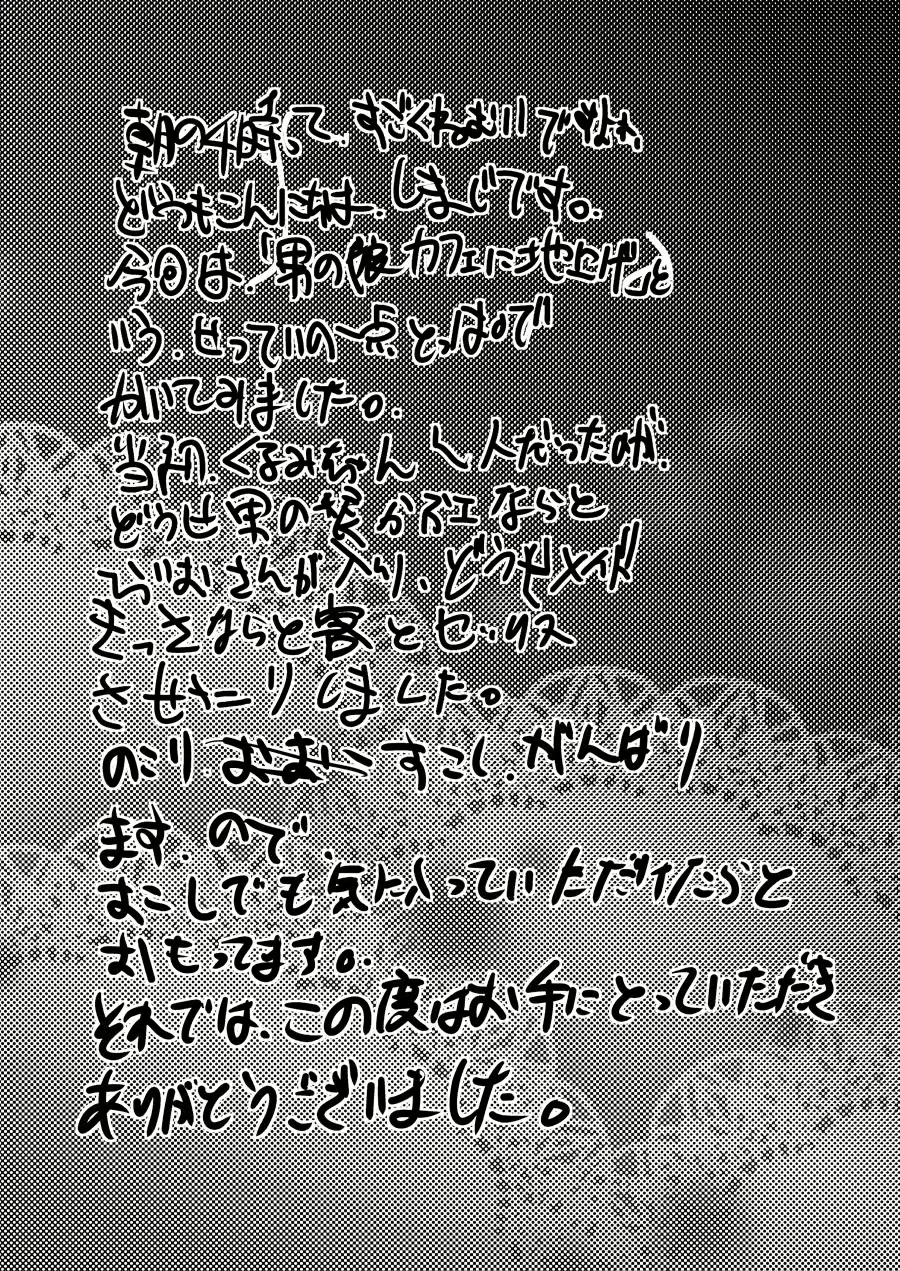 朝の4時って、すごくねむいですよね、
どうもこんにちは、しまじです。
今回は、「男の娘カフェに地上げ」と
いう、せっていの一点とっぱで
かいてみました。
当初、くるみちゃん1人だったのが、
どうせ男の娘かふェならと
らじおさんが入り、どうせメイド
きっさならと客とセックス
させたりしました。
のこり、すこし、がんばり
ます、ので、
すこしでも気に入っていただけたらと
おもってます。
それでは、この度はお手にとっていただき
ありがとうございました。